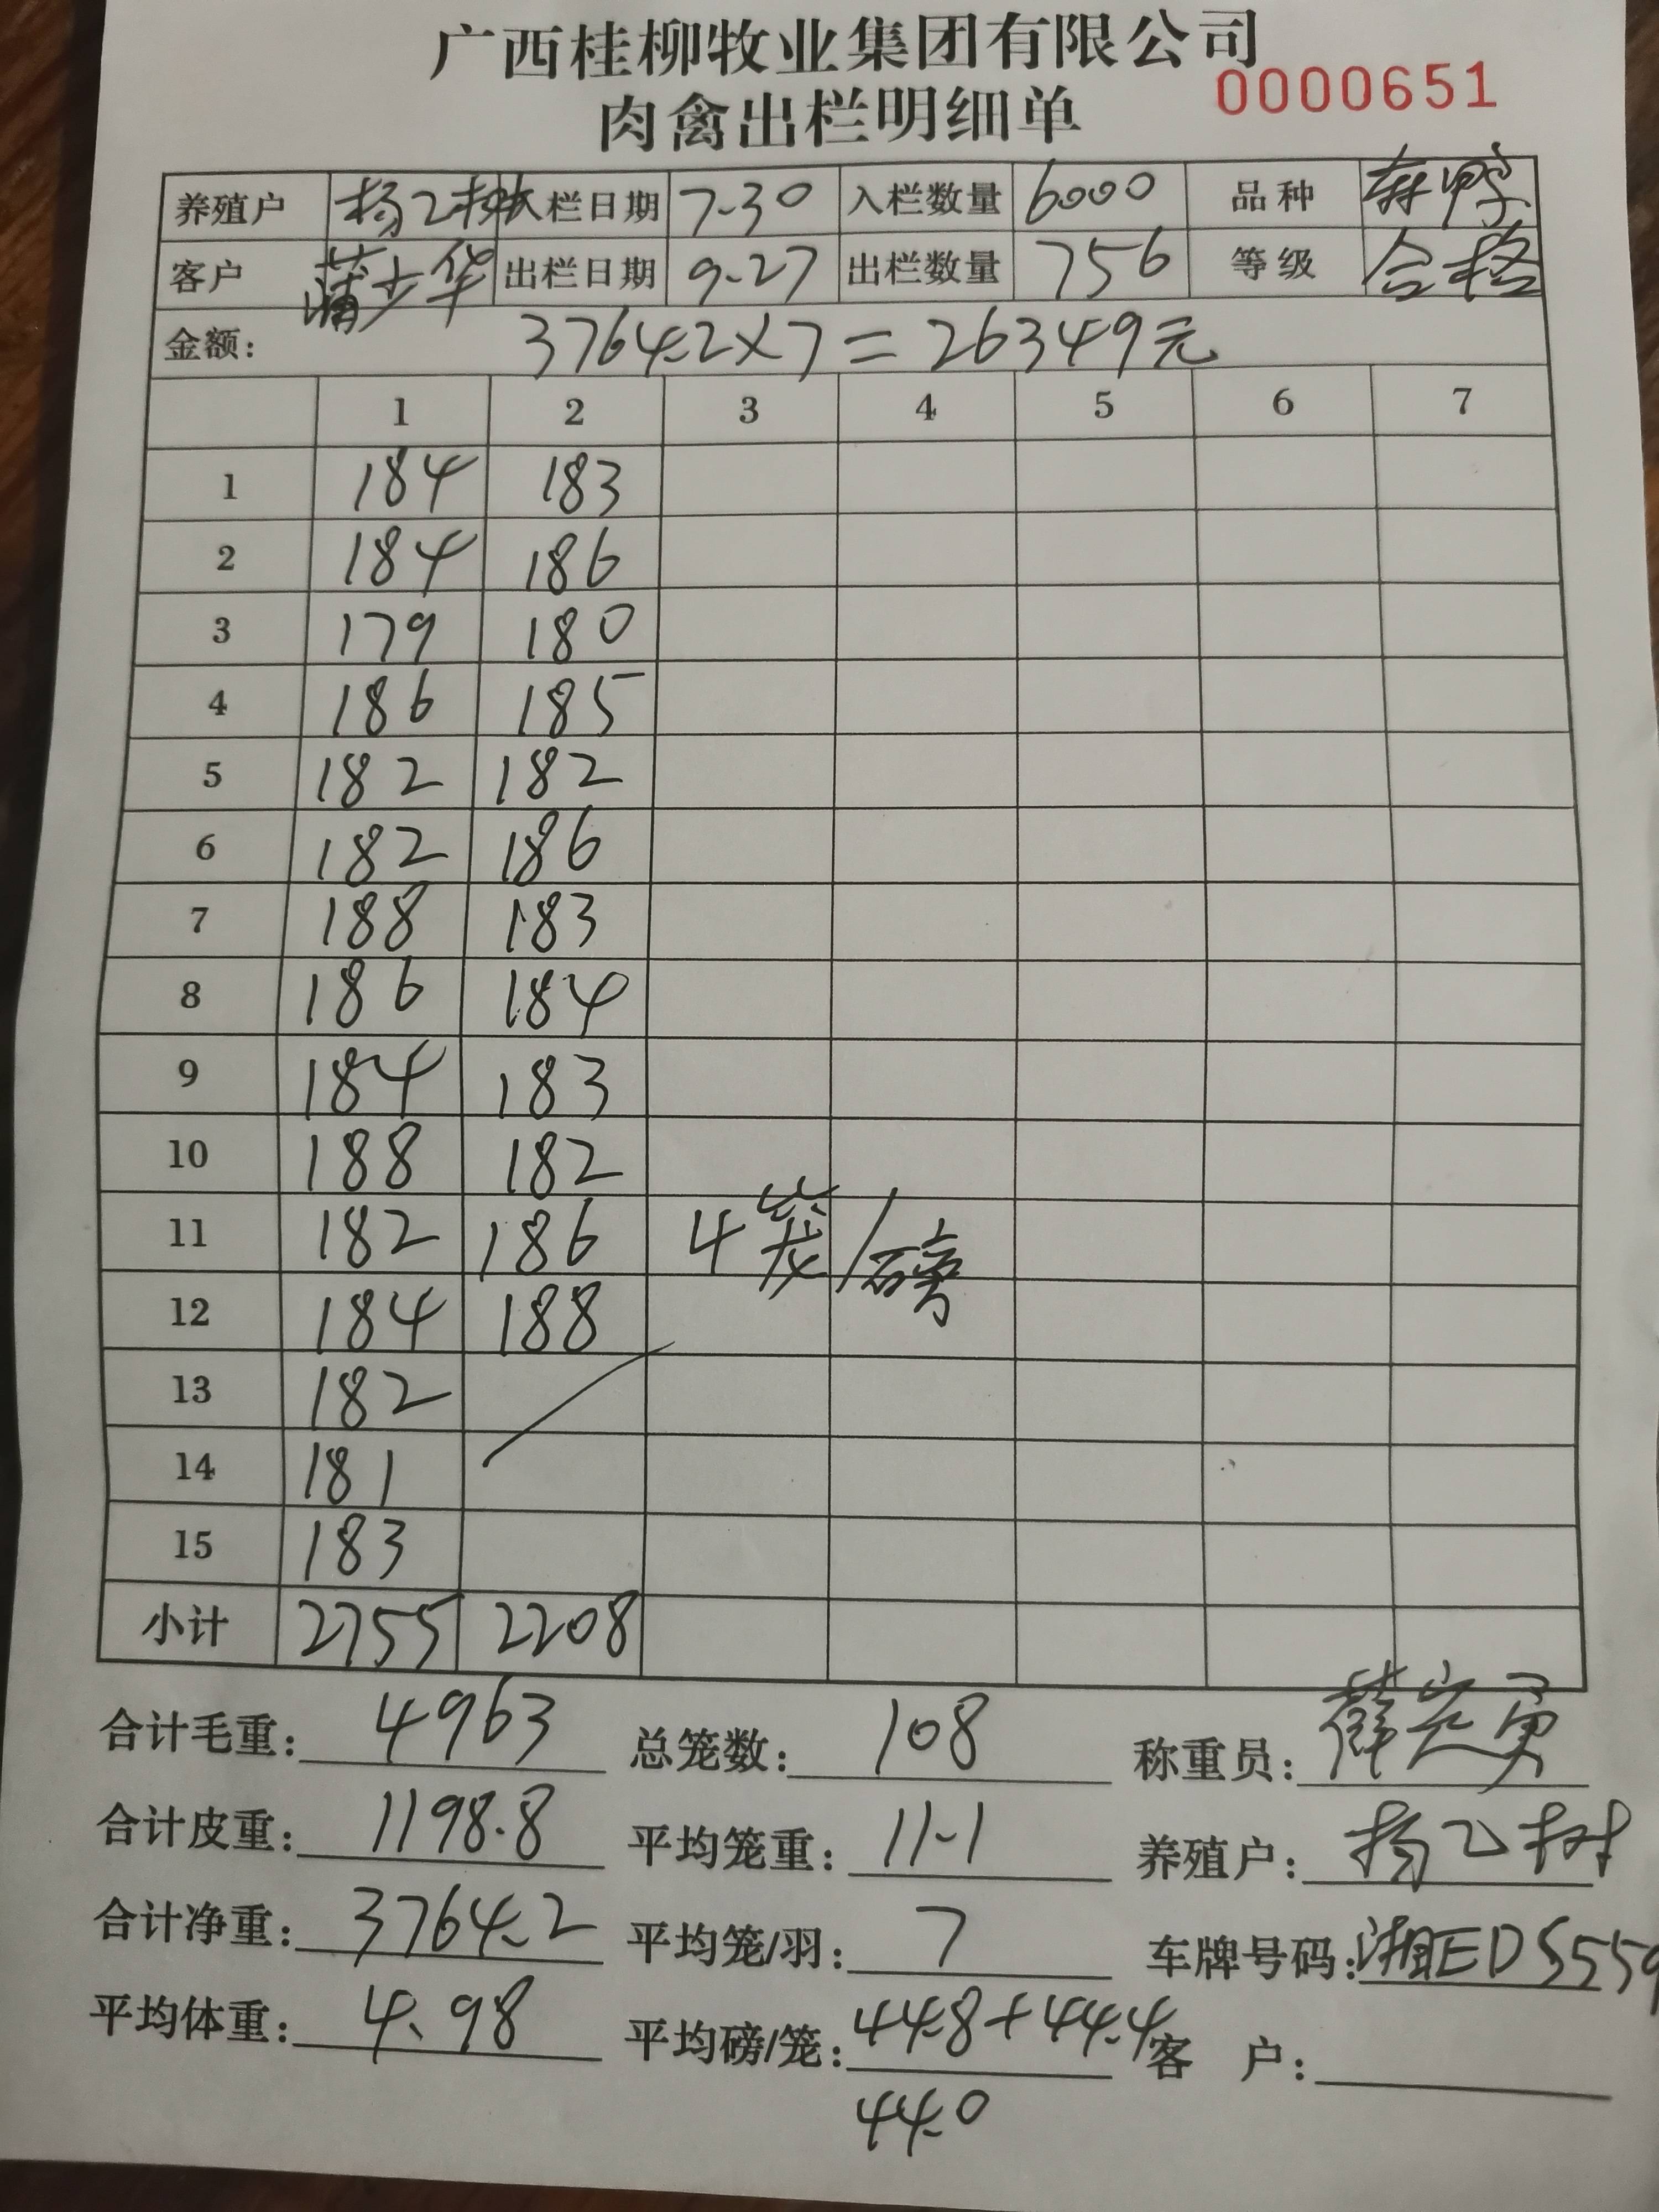 广西桂柳牧业集团有限公司
肉禽出栏明细单 0000651
养殖户 杨乙树 入栏日期 7-30 入栏数量 6000 品种 麻鸭
客户 蒲少华 出栏日期 9-27 出栏数量 756 等级 合格
金额: 3764.2×7=26349元
1 2 3 4 5 6 7
1 184 183
2 184 186
3 179 180
4 186 185
5 182 182
6 182 186
7 188 183
8 186 184
9 184 183
10 188 182
11 182 186 4笼/磅
12 184 188
13 182
14 181
15 183
小计 2755 2208
合计毛重: 4963 总笼数: 108 称重员: 薛
合计皮重: 1198.8 平均笼重: 11.1 养殖户: 杨乙树
合计净重: 3764.2 平均笼/羽: 7 车牌号码: 湘EDS559
平均体重: 4.98 平均磅/笼: 44.8+44.4 客 户:
44.0